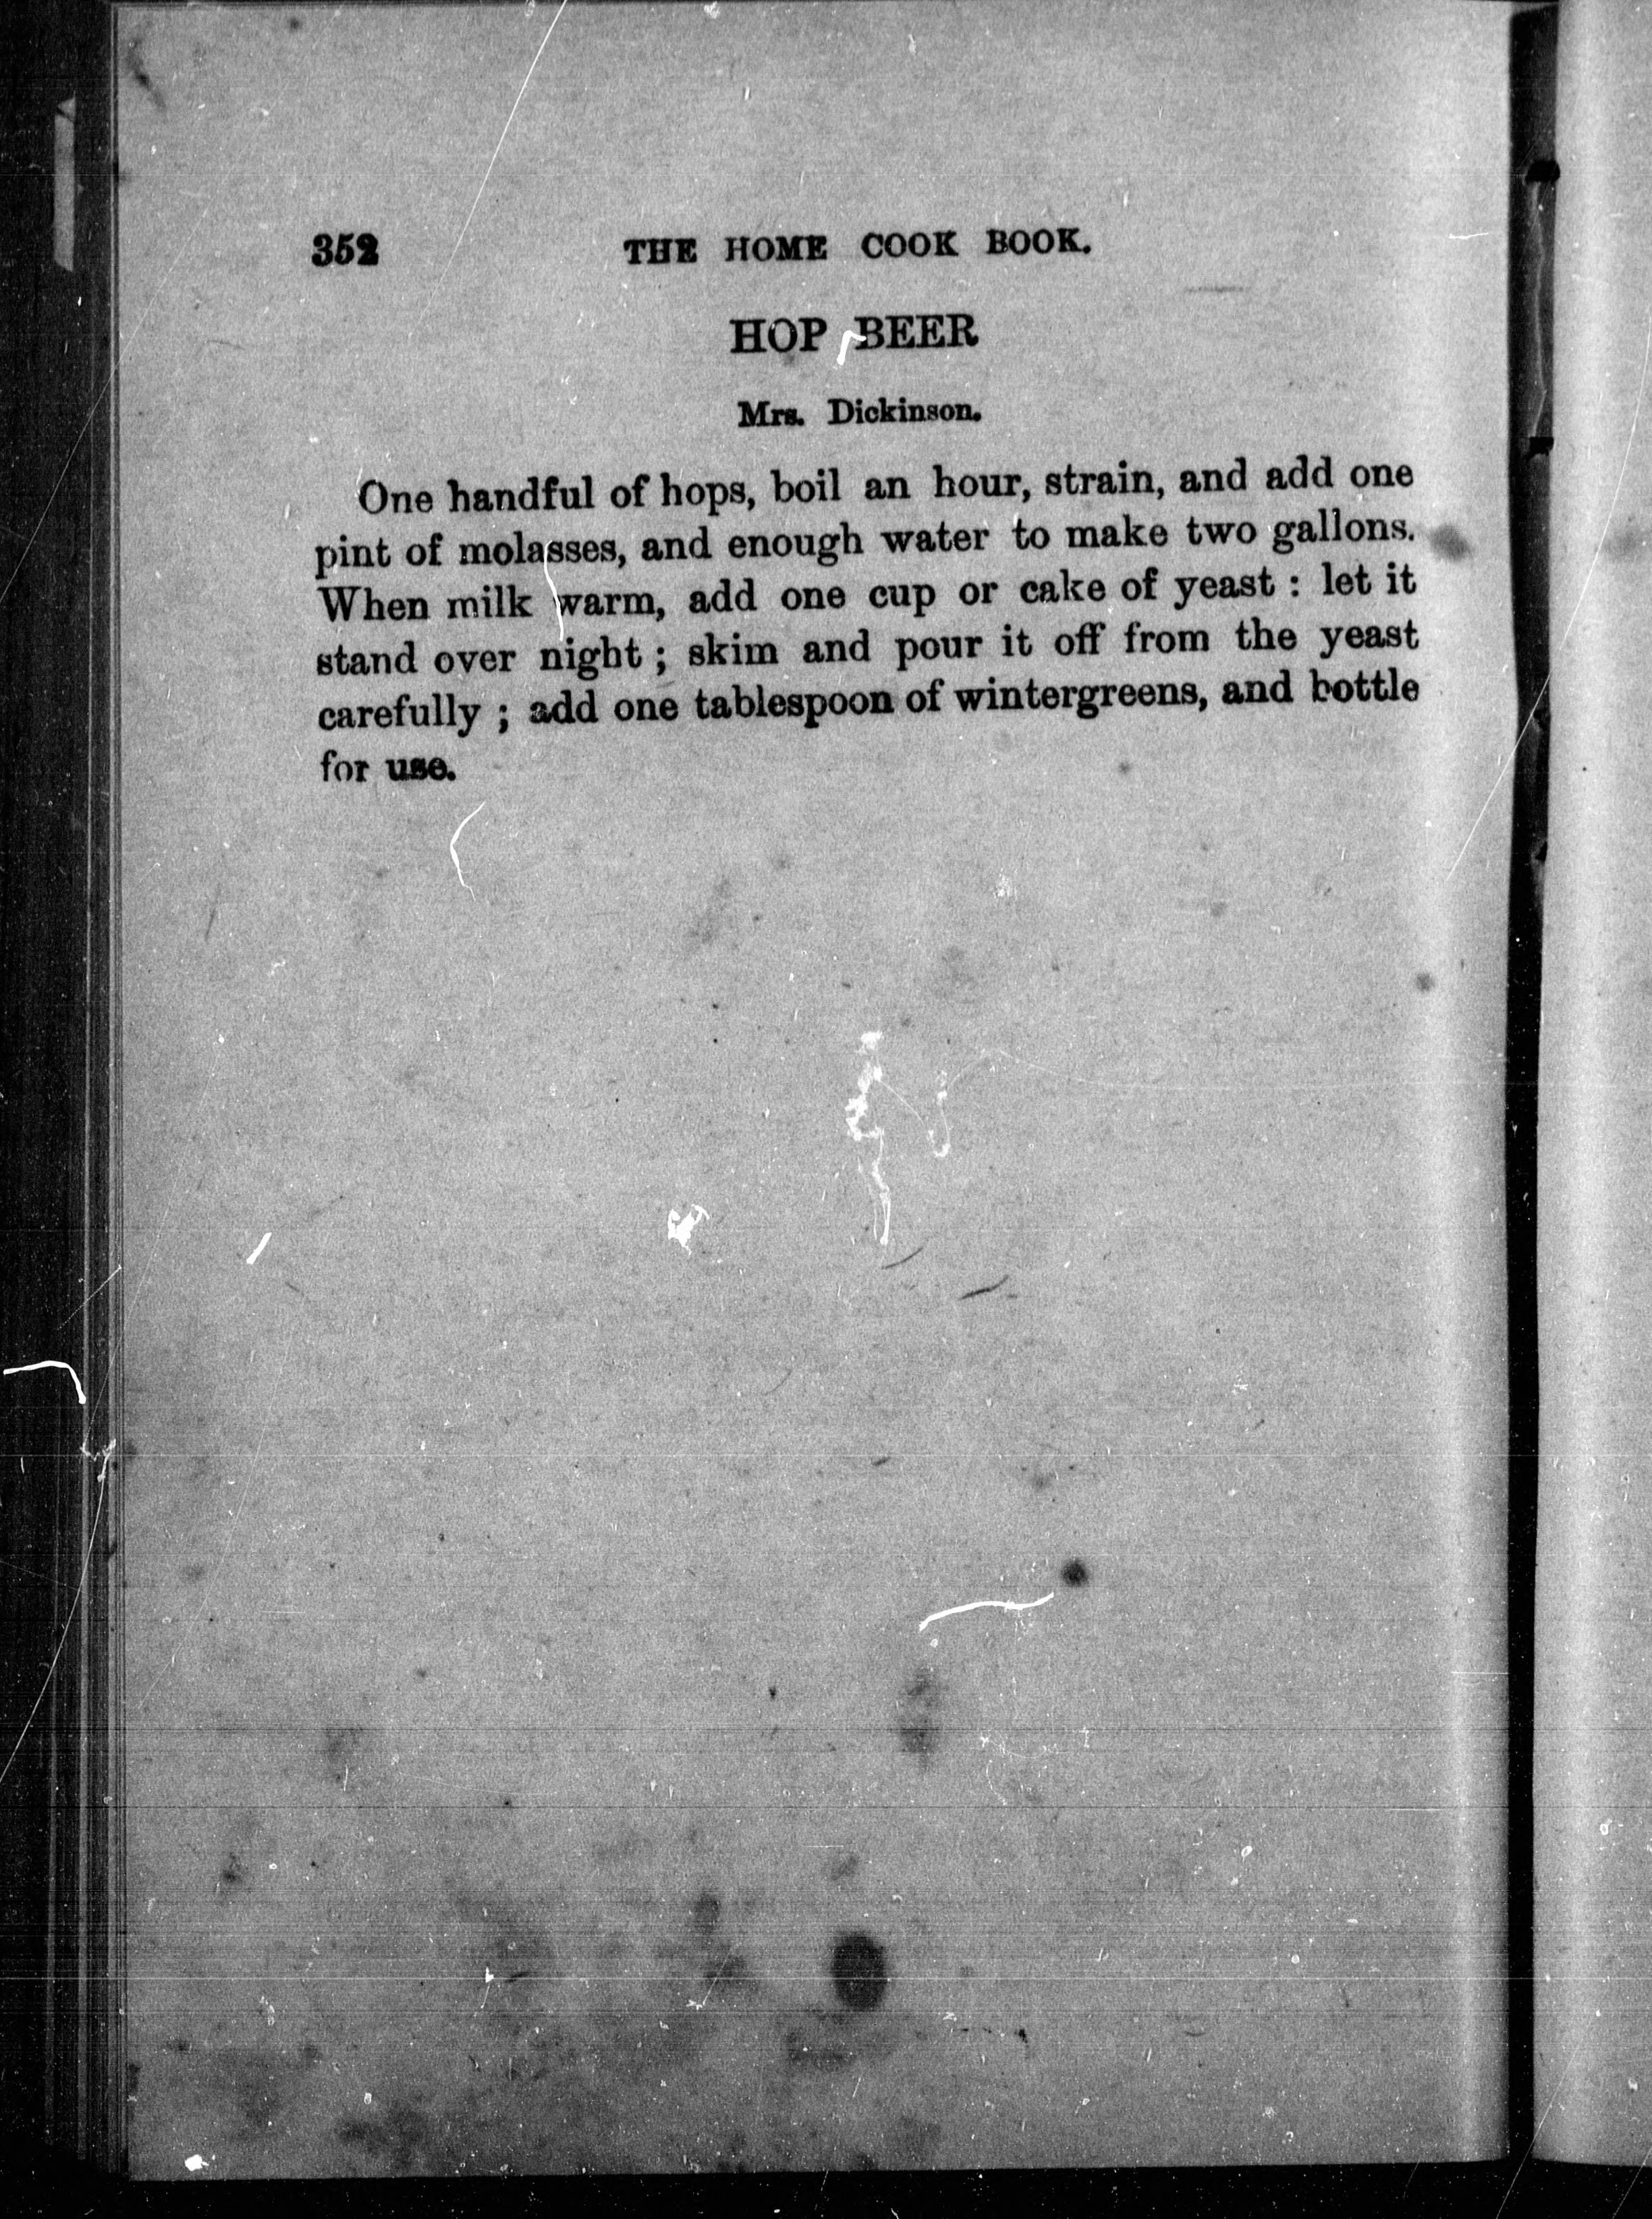 352 THE HOME COOK BOOK.
HOP BEER
Mrs. Dickinson.
One handful of hops, boil an hour, strain, and add one
pint of molasses, and enough water to make two gallons.
When milk warm, add one cup or cake of yeast : let it
stand over night ; skim and pour it off from the yeast
carefully ; add one tablespoon of wintergreens, and bottle
for use.